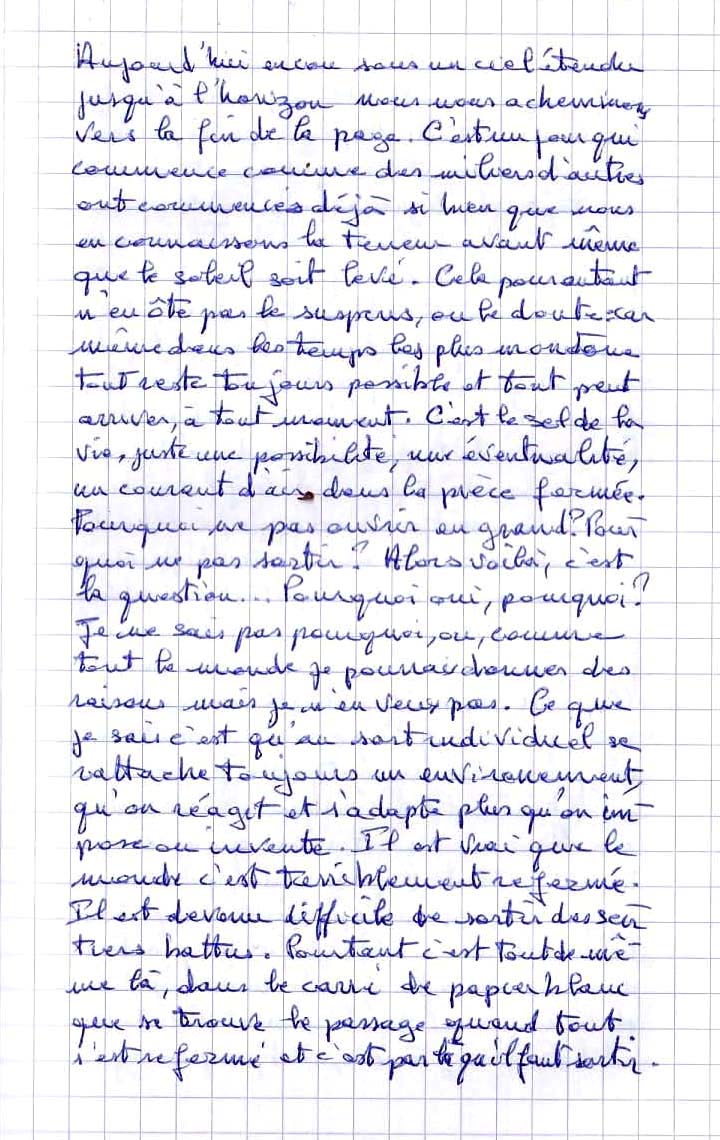 Aujourd'hui encore sous un ciel étendu
jusqu'à l'horizon nous nous acheminons
vers la fin de la page. C'est un jour qui
commence comme des milliers d'autres
ont commencés déjà si bien que nous
en connaissons la teneur avant même
que le soleil soit levé. Cela pour autant
n'en ôte pas le suspens, ou le doute car
même dans les temps les plus monotone
tout reste toujours possible et tout peut
arriver, à tout moment. C'est le sel de la
vie, juste une possibilité, une éventualité,
un courant d'air dans la pièce fermée.
Pourquoi ne pas ouvrir en grand? Pour
quoi ne pas sortir? Alors voilà, c'est
la question... Pourquoi oui, pourquoi?
Je ne sais pas pourquoi, ou, comme
tout le monde je pourrais donner des
raisons mais je n'en veux pas. Ce que
je sais c'est qu'au sort individuel se
rattache toujours un environement,
qu'on réagit et s'adapte plus qu'on im-
pose ou invente. Il est vrai que le
monde s'est terriblement refermé.
Il est devenu difficile de sortir des sen-
tiers battus. Pourtant c'est tout de mê-
me là, dans le carré de papier blanc
que se trouve le passage quand tout
s'est refermé et c'est par là qu'il faut sortir.